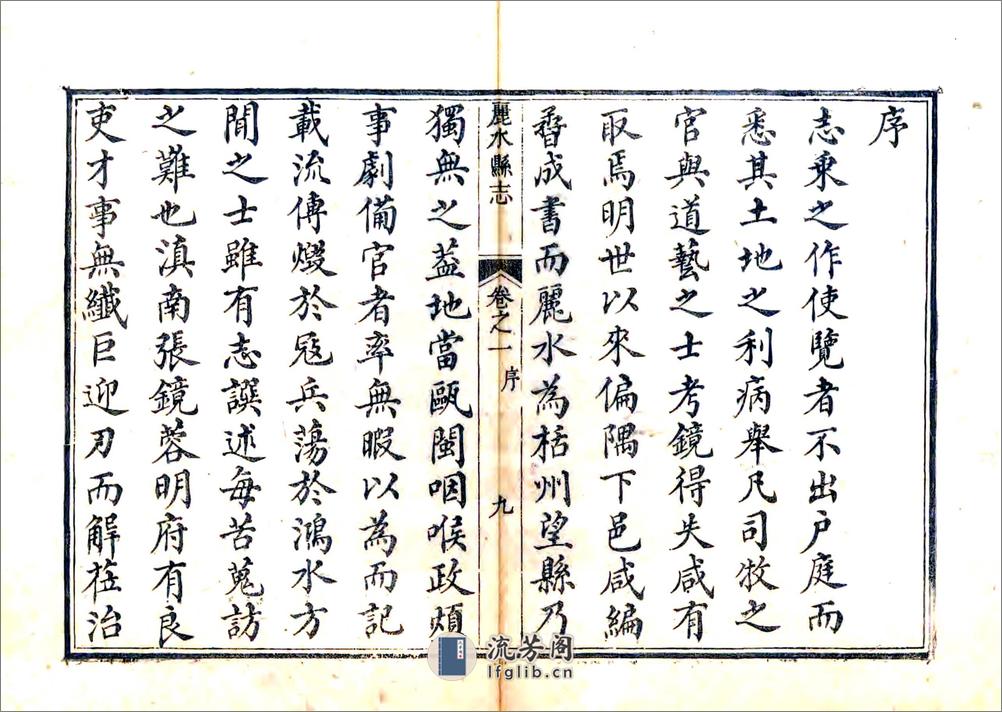 序
志乘之作使覽者不出户庭而
悉其土地之利病舉凡司牧之
官與道藝之士考鏡得失咸有
取焉明世以來偏隅下邑咸編
沓成書而麗水為括州望縣乃
麗水縣志 卷之一 序 九
獨無之葢地當甌閩咽喉政煩
事劇備官者率無暇以為而記
載流傳燬於寇兵蕩於鴻水方
聞之士雖有志譔述每苦蒐訪
之難也滇南張鏡蓉明府有良
吏才事無纖巨迎刃而解莅治
流芳阁
lfglib.cn